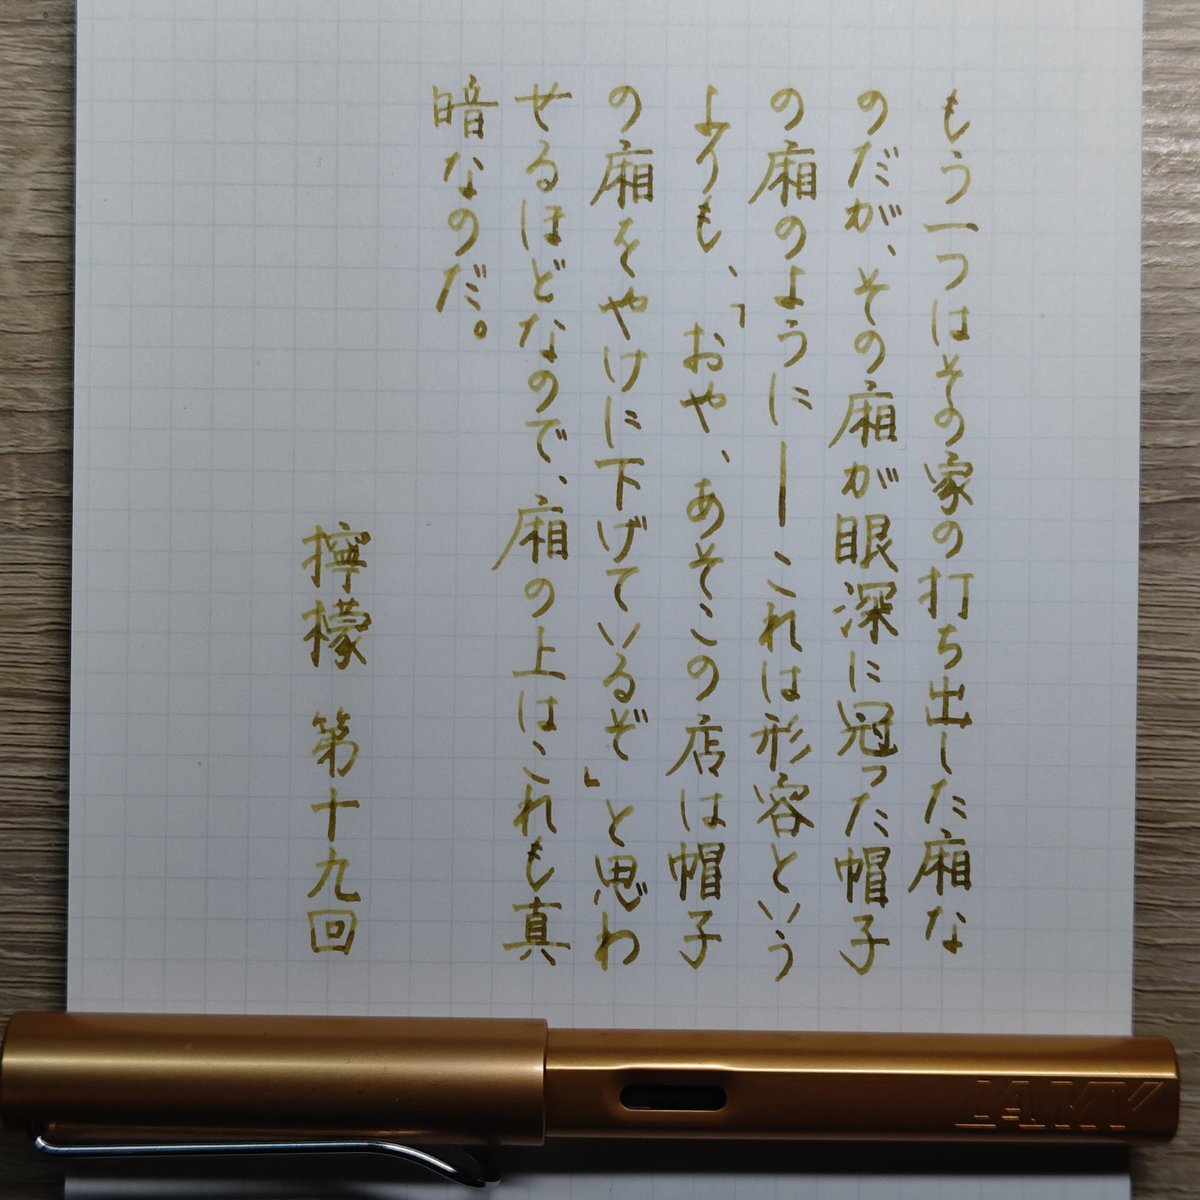 もう一つはその家の打ち出した廂な
のだが、その廂が眼深に冠った帽子
の廂のように―これは形容という
よりも、「おや、あそこの店は帽子
の廂をやけに下げているぞ」と思わ
せるほどなので、廂の上はこれも真
暗なのだ。
檸檬 第十九回
LAMY